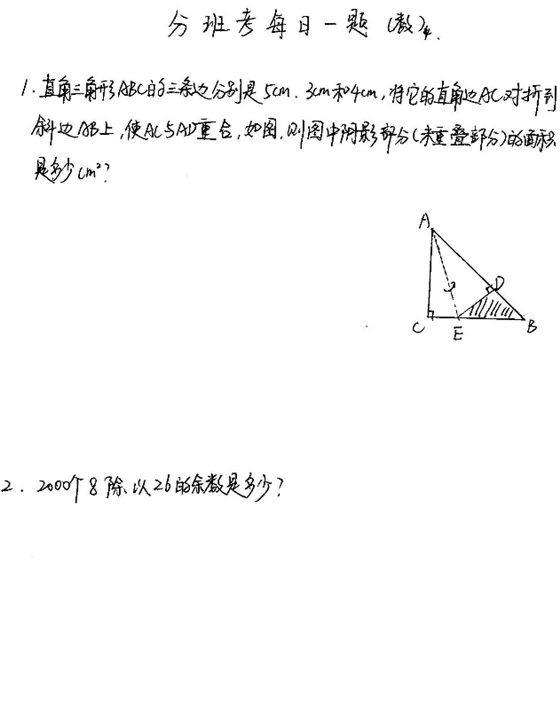 分班考每日一题(数)4.
1. 直角三角形ABC的三条边分别是5cm. 3cm和4cm, 将它的直角边AC对折到
斜边AB上, 使AC与AD重合, 如图, 则图中阴影部分(未重叠部分)的面积
是多少cm²?
A
D
C
E
B
2. 2000个8除以26的余数是多少?